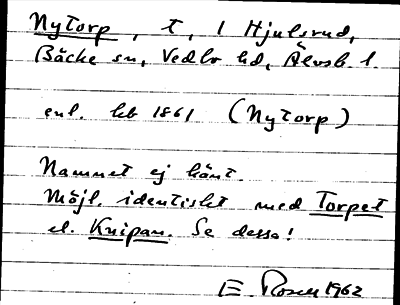 Nytorp, t, 1 Hjulsrud,
Bäcke sn, Vedbo hd, Älvsb. l.
enl. hb 1861 (Nytorp)
Namnet ej känt.
Möjl. identiskt med Torpet
el. Knipan. Se dessa!
E. Rosell 1962